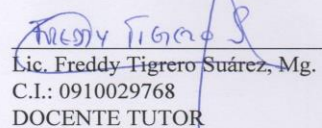 FREDDY TIGRERO S
Lic. Freddy Tigrero Suárez, Mg.
C.I.: 0910029768
DOCENTE TUTOR